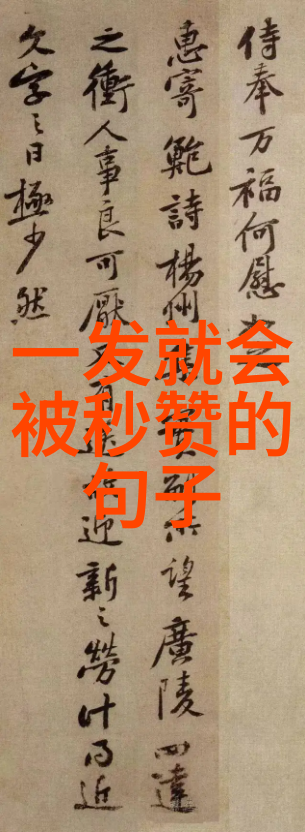 侍奉万福何慰
惠寄鲍詩楊州
望廣陵四達
之衝人事良可厭
迎新之勞計日近
欠字之日極少然
一发就会
被秒赞的
句子